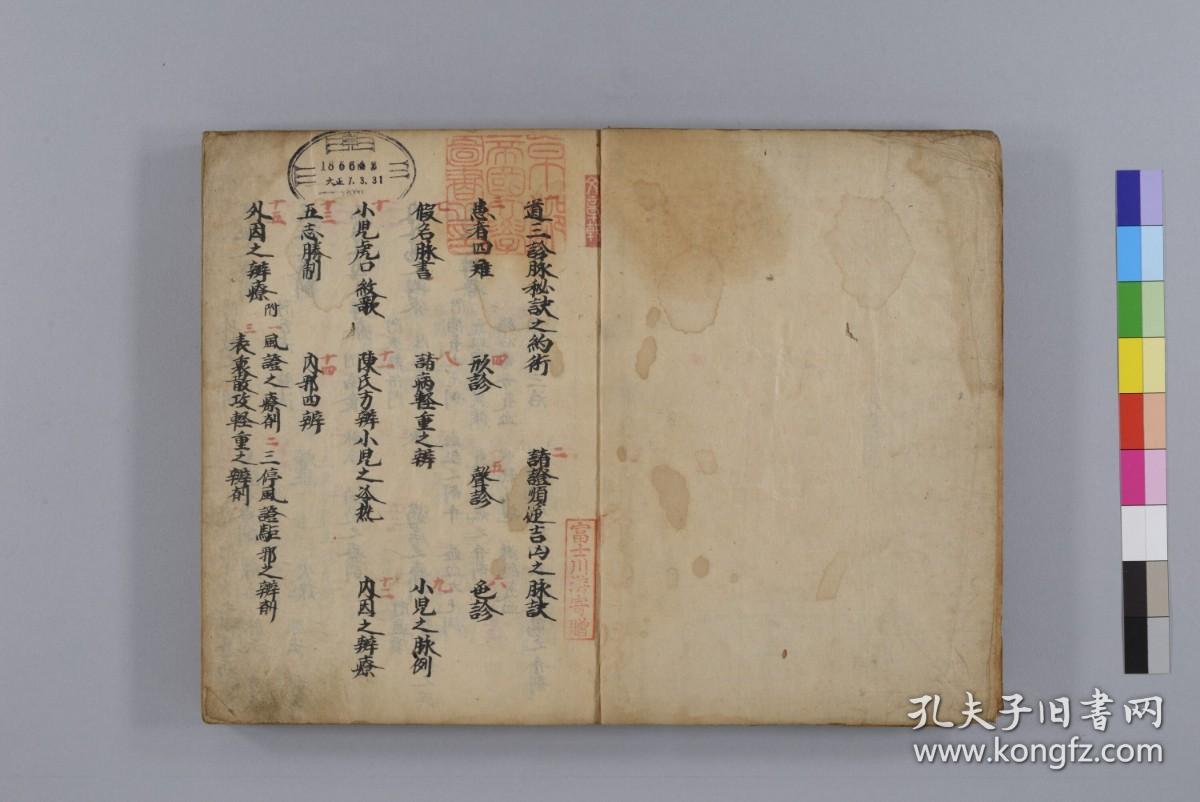 道三診脉秘訣之約術 二 諸證順逆吉凶之脉訣
三 患者四難 四 形診 五 聲診 六 色診
七 假名脉書 八 諸病輕重之辨 九 小児之脉例
十 小児虎口紋歌 十一 陳氏方辨小児之冷熱 十二 内因之辨療
十三 五志勝制 十四 内邪四辨
十五 外因之辨療 附 一 風證之療劑 二 三停風證駈邪之辨劑
三 表裏散攻輕重之辨劑
富士川游寄贈
186688
大正7.3.31
孔夫子旧書网
www.kongfz.com